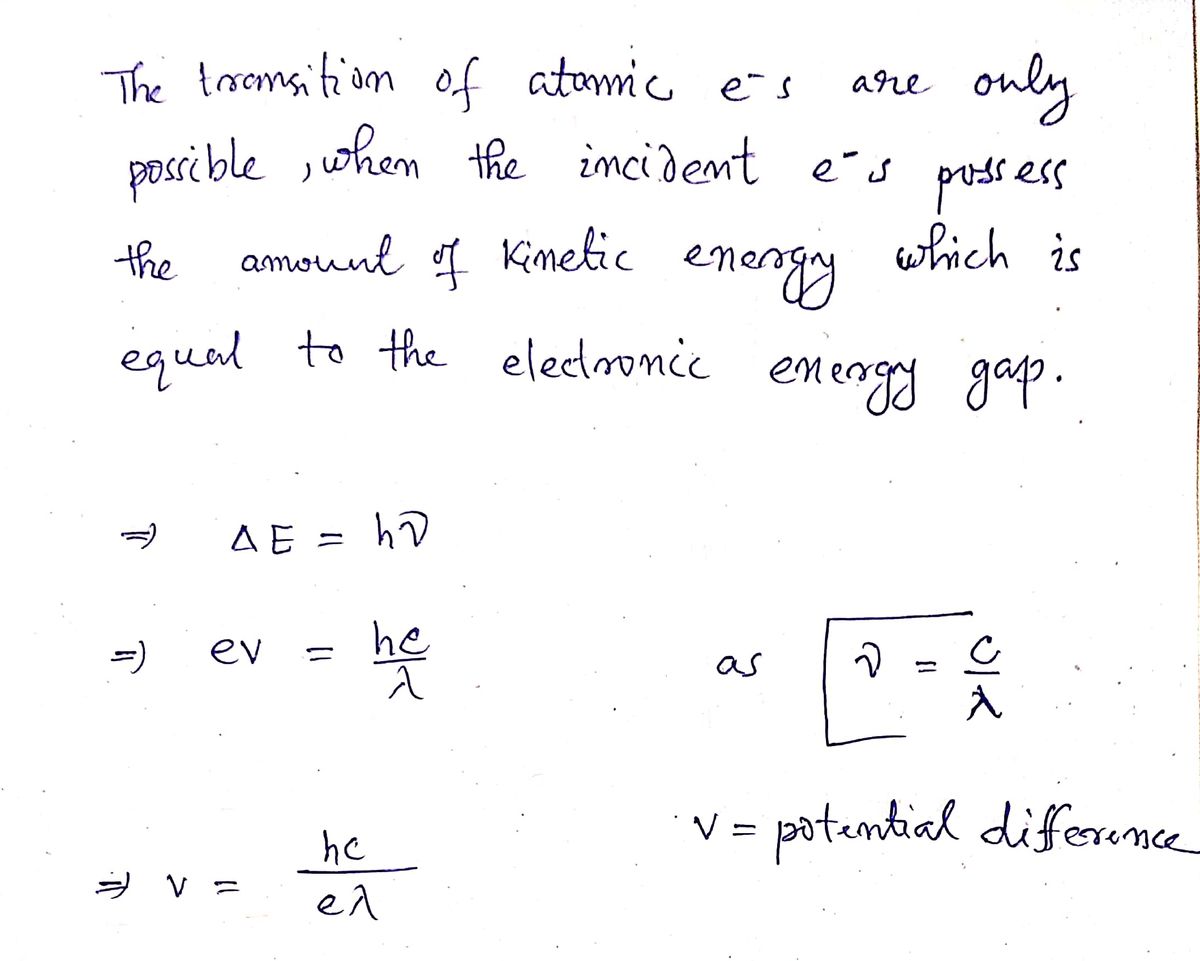 The transition of atomic e⁻s are only
possible, when the incident e⁻s possess
the amount of Kinetic energy which is
equal to the electronic energy gap.
⇒ ΔE = hν
⇒ eV = hc/λ as ν = c/λ
V = potential difference
⇒ V = hc/eλ